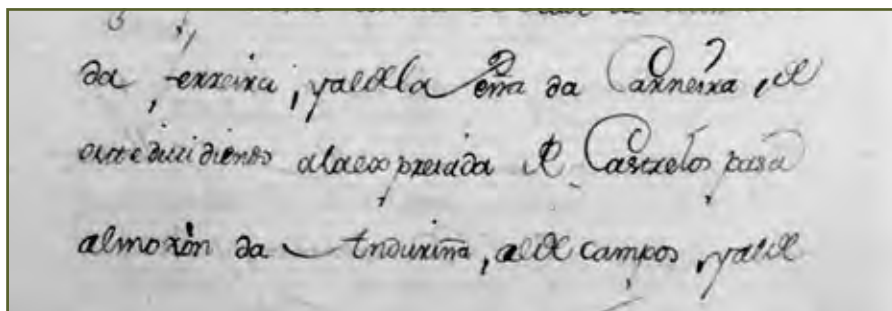 da ferreira, y al de la Peña da Carneira, de
este dividiendo a la expresada de Castrelos pasa
al moxón da Anduriña, al de campos, y al de